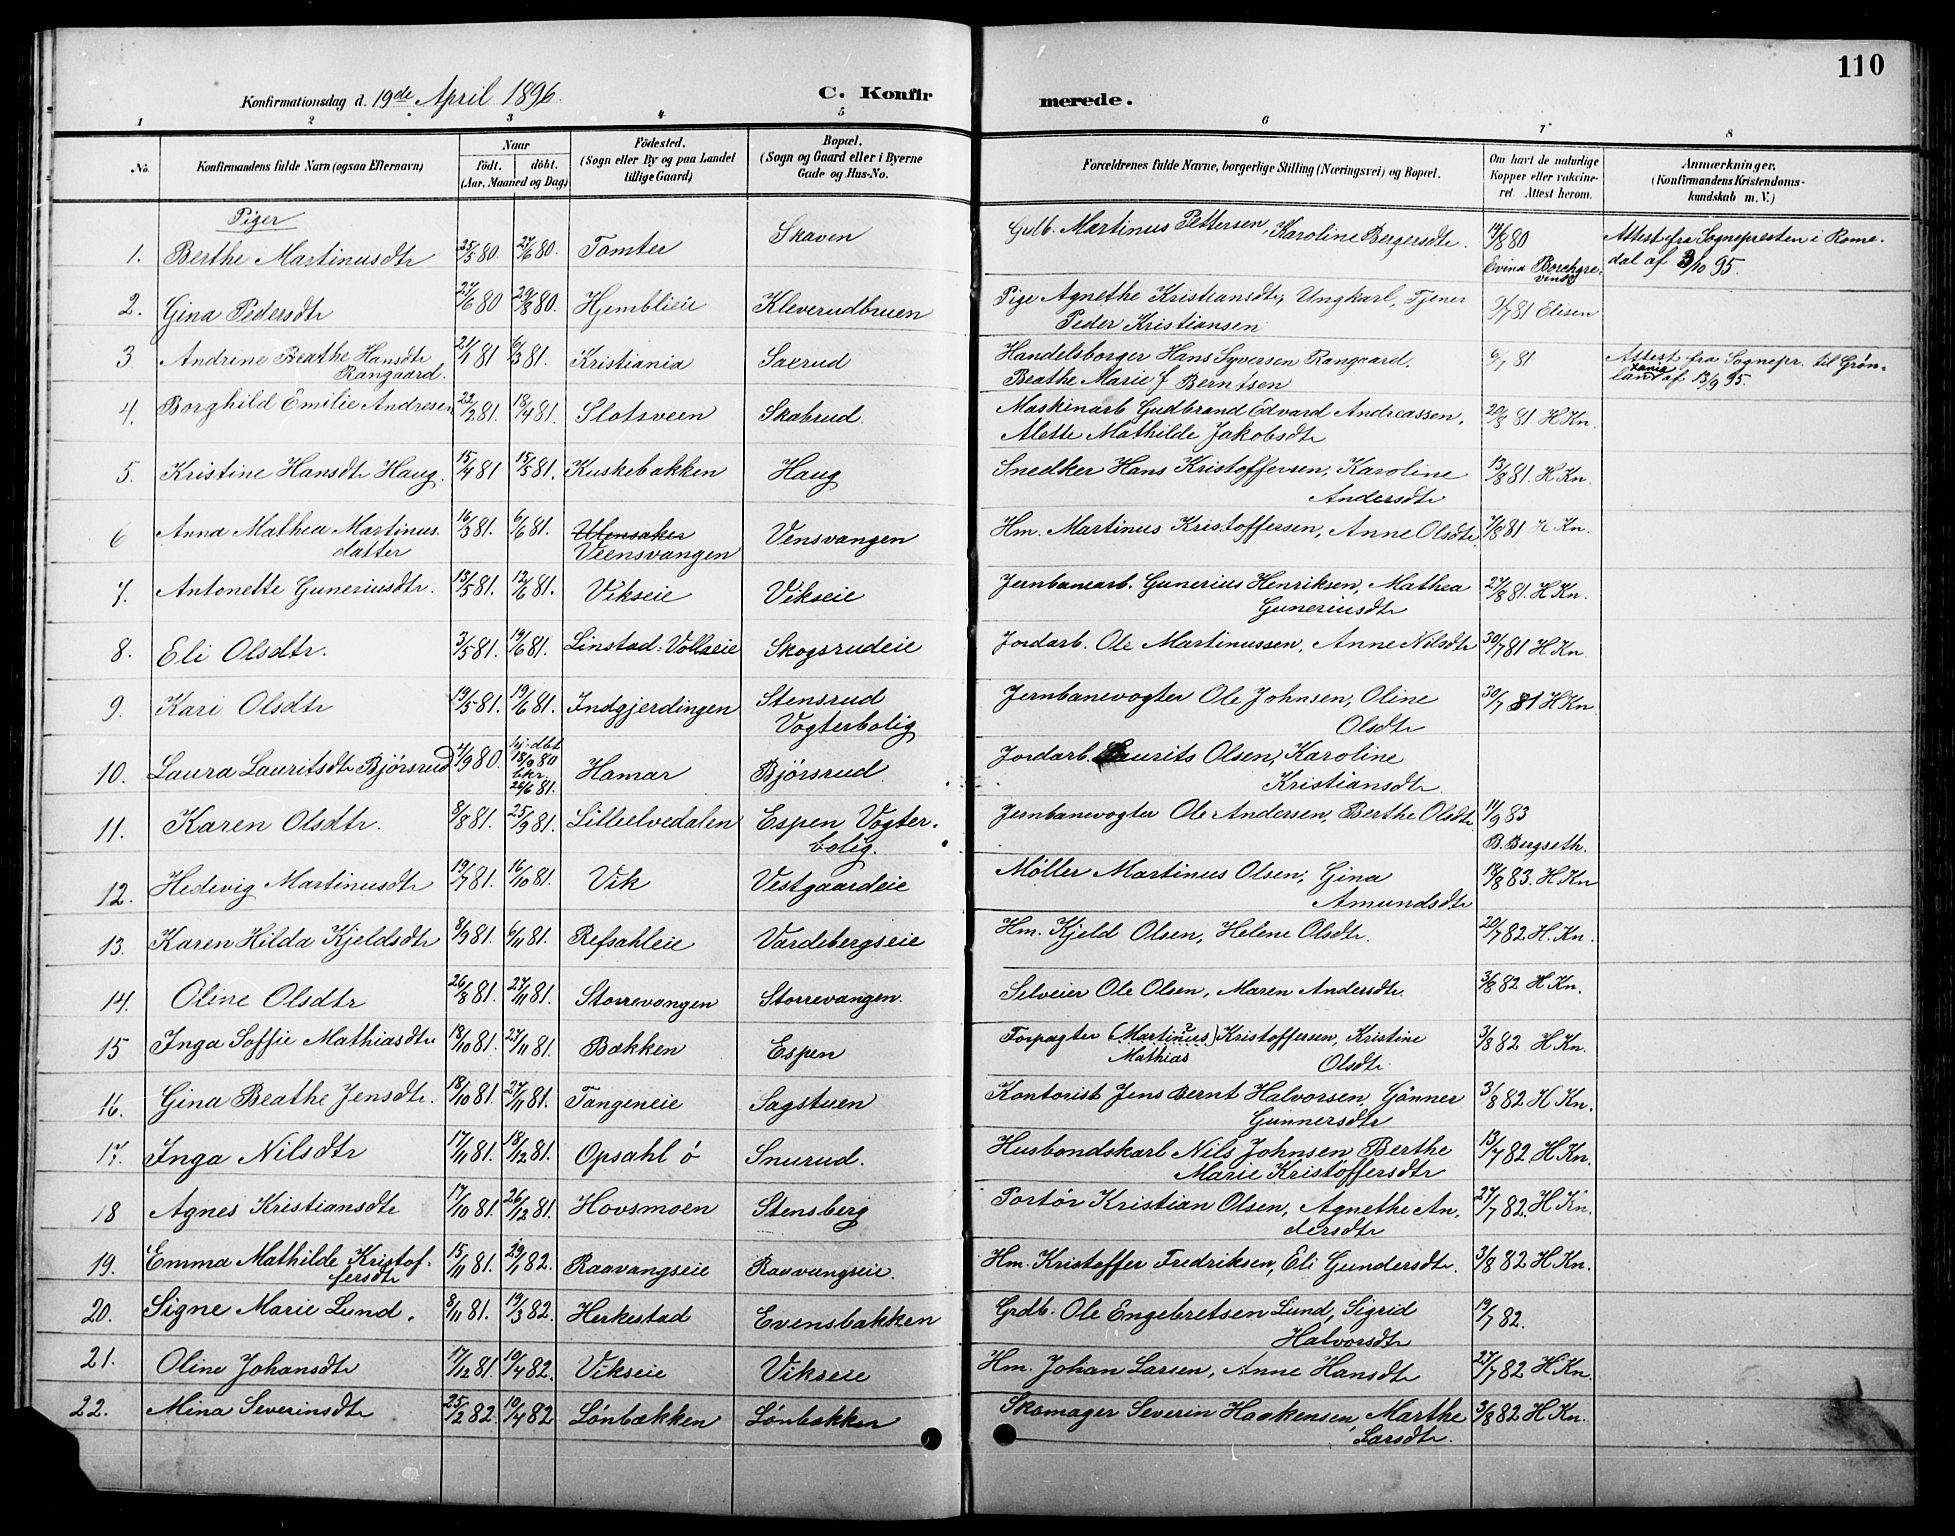 110
Konfirmationsdag d. 19de April 1896.
C. Konfir merede.
1 2 3 4 5 6 7 8
No. Konfirmandens fulde Navn (ogsaa Efternavn) Naar født. døbt. (Aar, Maaned og Dag) Fødested. (Sogn eller By og paa Landet tillige Gaard) Bopæl. (Sogn og Gaard eller i Byerne Gade og Hus-No. Forældrenes fulde Navne, borgerlige Stilling (Næringsvei) og Bopæl. Om havt de naturlige Kopper eller vakcineret. Attest herom. Anmærkninger. (Konfirmandens Kristendomskundskab m. V.)
Piger
1. Berthe Martinusdtr 25/5 80 27/6 80. Tomter Skaven Gdb. Martinus Pettersen, Karoline Bergersdtr. 14/8 80 Attest fra Sognepresten i Rome-
Borchgrevink dal af 3/10 95.
2. Gina Pedersdtr 27/6 80 29/8 80. Hjemblieie Kleverudbruen Pige Agnethe Kristiansdtr, Ungkarl, Tjener 9/7 81 Elisen
Peder Kristiansen
3 Andrine Beathe Hansdtr 21/1 81 6/3 81. Kristiania Saxrud Handelsborger Hans Syversen Rangaard, 6/7 81 Attest fra Sognepr. til Grøn-
Rangaard. Beathe Marie f Berntsen land af 13/9 95.
4. Borghild Emilie Andresen 22/2 81. 18/4 81. Slotsveen Skabrud. Maskinarb Gudbrand Edvard Andreassen, 20/8 81. H Kn.
Alette Mathilde Jakobsdtr
5. Kristine Hansdtr Haug. 15/4 81 15/5 81. Kuskebakken Haug Snedker Hans Kristoffersen, Karoline 13/8 81. H Kn.
Andersdtr
6 Anna Mathea Martinus 16/3 81. 6/6 81. Ulensaker Vensvangen Hm. Martinus Kristoffersen, Anne Olsdtr. 7/8 81 H Kn.
datter Veensvangen
7. Antonette Guneriusdtr. 13/5 81. 12/6 81. Vikseie Vikseie Jernbanearb. Gunerius Henriksen, Mathea 27/8 81. H Kn.
Guneriusdtr
8. Eli Olsdtr. 3/5 81. 19/6 81. Linstad-Vollaeie Skogsrudeie Jordarb. Ole Martinussen, Anne Nilsdtr 30/7 81 H Kn
9. Kari Olsdtr 19/5 81. 19/6 81. Indgjerdingen Stensrud Jernbanevogter Ole Johnsen, Oline 30/7 81 H Kn
Vogterbolig Olsdtr
10. Laura Lauritsdtr Bjørsrud 4/9 80. hj: dbt 18/9 80 bkr. 26/6 81. Hamar Bjørsrud Jordarb. Laurits Olsen, Karoline
Kristiansdtr
11. Karen Olsdtr. 8/8 81. 25/9 81. Lilleelvedalen Espen Vogter- Jernbanevogter Ole Andersen, Berthe Olsdtr. 11/9 83
bolig. B. Bergseth.
12. Hedevig Martinusdtr 19/7 81. 16/10 81. Vik Vestgaardeie Møller Martinus Olsen, Gina 17/8 83. H Kn
Amundsdtr
13. Karen Hilda Kjeldsdtr 8/9 81. 6/11 81. Refsahleie Vardebergseie Hm. Kjeld Olsen, Helene Olsdtr. 20/7 82 H. Kn.
14. Oline Olsdtr 26/8 81. 27/11 81. Storrevangen Storrevangen. Selveier Ole Olsen, Maren Andersdtr. 3/8 82 H Kn.
15 Inga Soffie Mathiasdtr 18/10 81. 27/11 81. Bakken Espen Forpagter (Martinus?) Kristoffersen, Kristine 3/8 82 H Kn.
Mathias Olsdtr
16. Gina Beathe Jensdtr. 18/10 81. 27/11 81. Tangeneie Sagstuen Kontorist Jens Bernt Halvorsen, Gønner 3/8 82 H Kn.
Gunnersdtr
17. Inga Nilsdtr 17/11 81. 18/12 81. Opsahl ø Snurud. Husbondskarl Nils Johnsen, Berthe 13/7 82. H Kn.
Marie Kristoffersdtr
18 Agnes Kristiansdtr 17/10 81. 26/12 81. Hovsmoen Stensberg Portør Kristian Olsen, Agnethe An- 27/7 82. H Kn.
dersdtr
19. Emma Mathilde Kristof- 15/11 81. 29/1 82. Raavangseie Raavangseie. Hm. Kristoffer Fredriksen, Eli Gundersdtr. 3/8 82 H Kn.
fersdtr
20. Signe Marie Lund. 8/11 81. 19/3 82. Herkestad Evensbakken Grdb. Ole Engebretsen Lund, Sigrid 19/7 82.
Halvorsdtr
21. Oline Johansdtr 17/12 81. 10/4 82. Vikseie Vikseie Hm. Johan Larsen, Anne Hansdtr 27/7 82 H Kn.
22. Mina Severinsdtr 25/2 82. 10/4 82 Lønbækken Lønbakken Skomager Severin Haakensen, Marthe 3/8 82 H Kn.
Larsdtr.